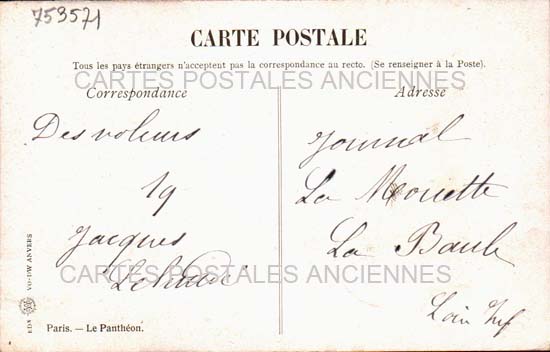 753571
CARTE POSTALE
Tous les pays étrangers n'acceptent pas la correspondance au recto. (Se renseigner à la Poste).
CARTES POSTALES ANCIENNES
Correspondance
Adresse
Des voleurs
19
Jacques
Journal
La Mouette
La Baule
Loire Inf
CARTES POSTALES ANCIENNES
VO-DW ANVERS
Paris. — Le Panthéon.